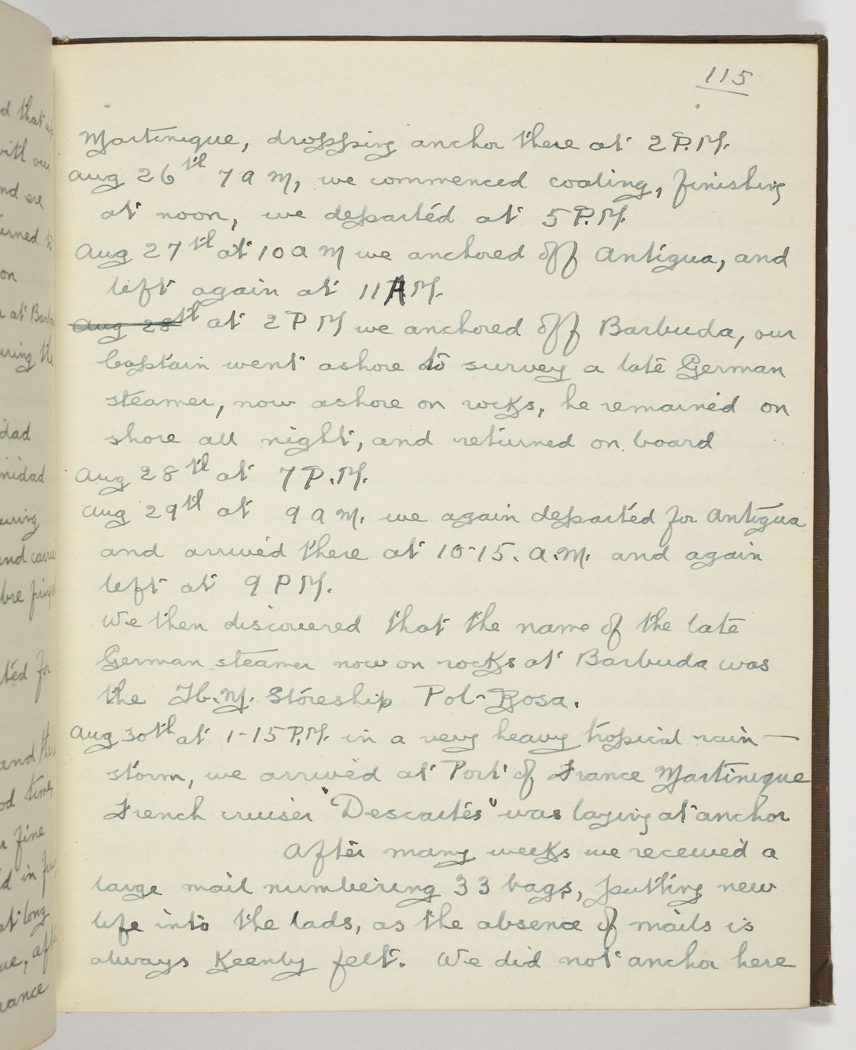 115
Martinique, dropping anchor there at 2 P.M.
Aug 26th 7 A M, we commenced coaling, finishing
at noon, we departed at 5 P.M.
Aug 27th at 10 a M we anchored off Antigua, and
left again at 11 AM.
Aug 28th at 2 P M we anchored off Barbuda, our
Captain went ashore to survey a late German
steamer, now ashore on rocks, he remained on
shore all night, and returned on board
Aug 28th at 7 P.M.
Aug 29th at 9 a M. we again departed for Antigua
and arrived there at 10-15. a.M. and again
left at 9 P M.
We then discovered that the name of the late
German steamer now on rocks at Barbuda was
the H.M. Storeship Pol-Rosa.
Aug 30th at 1-15 P.M. in a very heavy tropical rain-
storm, we arrived at Port of France Martinique
French cruiser "Descartes" was laying at anchor
After many weeks we received a
large mail numbering 33 bags, putting new
life into the lads, as the absence of mails is
always Keenly felt. We did not anchor here